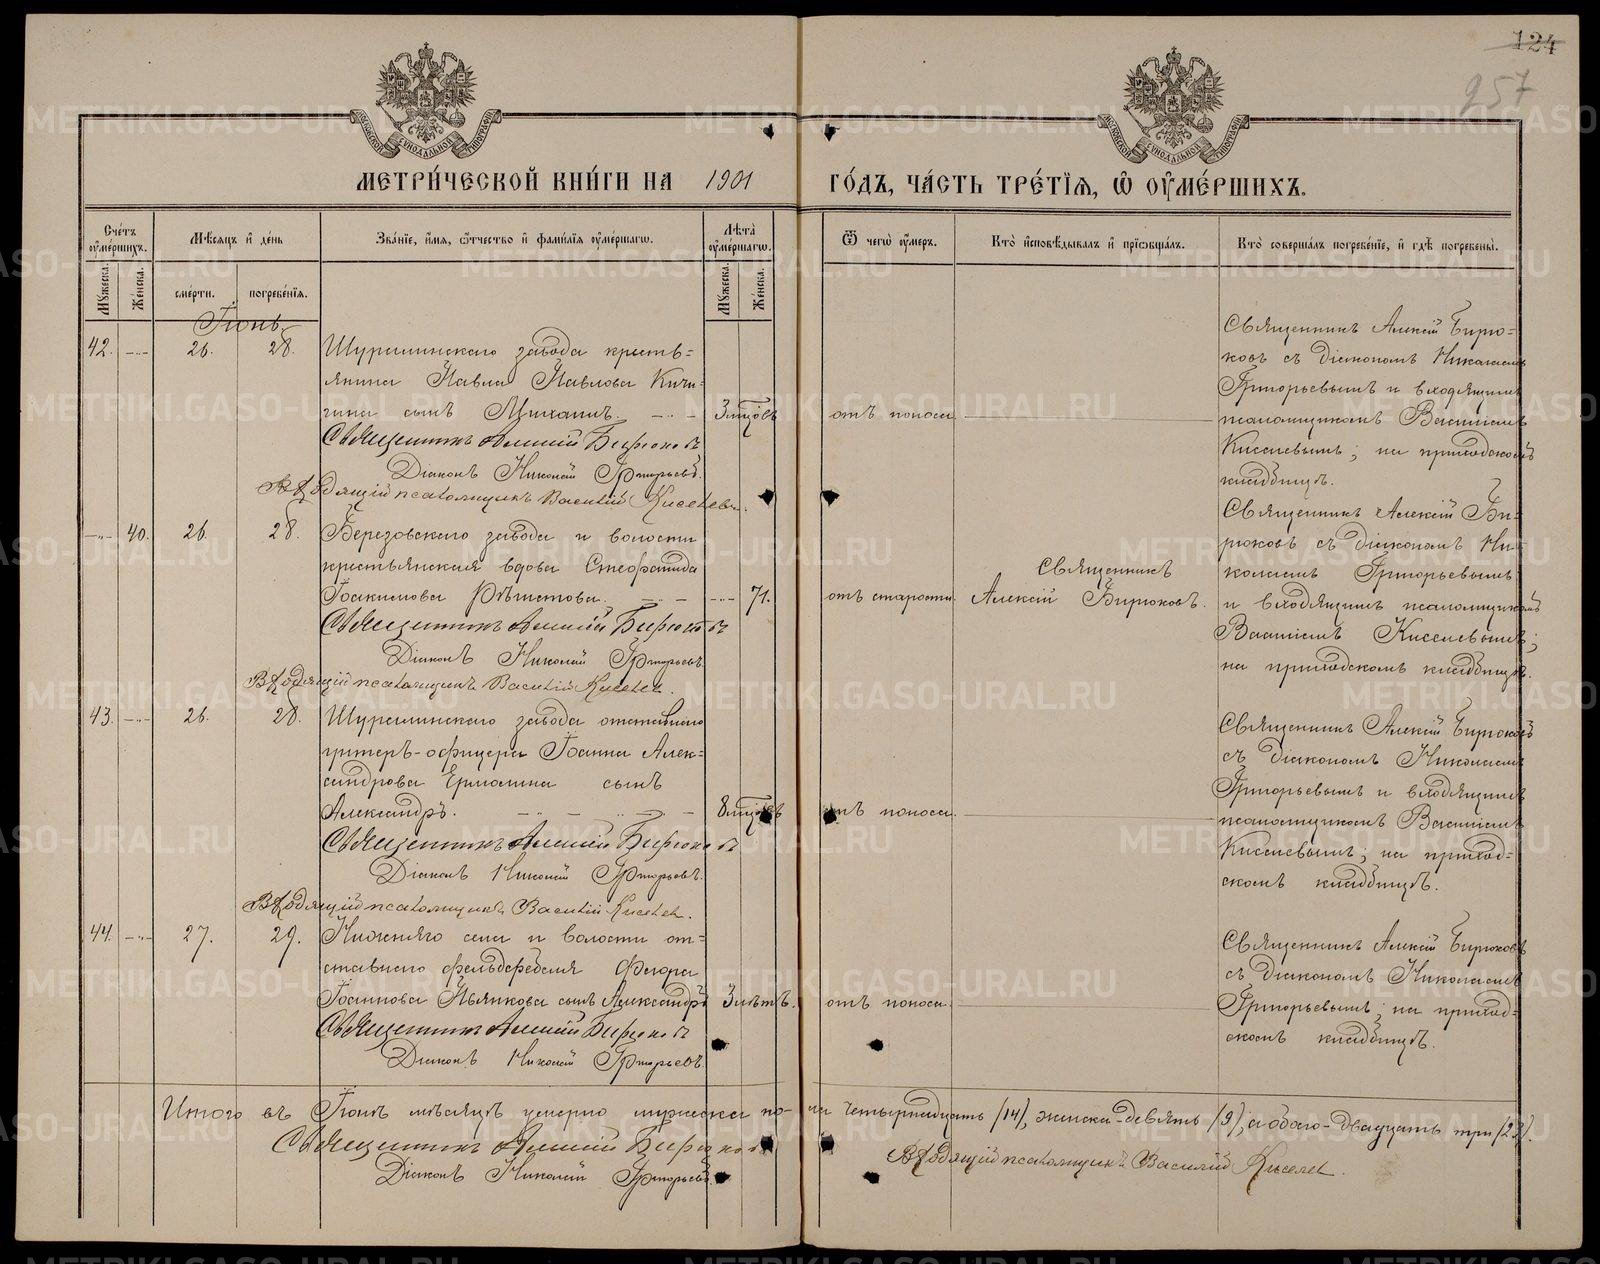 124
257
МЕТРИ́ЧЕСКОЙ КНИ́ГИ НА 1901 ГО́ДЪ, ЧА́СТЬ ТРЕ́ТІѦ, Ѡ҆ ОУ҆МЕ́РШИХЪ.
Сче́тъ оу҆ме́ршихъ.
Му́жеска.
Же́нска.
Мѣ́сѧцъ и҆ де́нь
сме́рти.
погребе́нїѧ.
Зва́нїе, и҆́мѧ, ѻ҆́тчество и҆ фами́лїѧ оу҆ме́ршагѡ.
Лѣ́та оу҆ме́ршагѡ.
Му́жеска.
Же́нска.
Ѿ чегѡ̀ оу҆́меръ.
Кто̀ и҆сповѣ́дывалъ и҆ прїѡбща́лъ.
Кто̀ соверша́лъ погребе́нїе, и҆ гдѣ̀ погребены̀.
Іюнь
42. -"- 26. 28.
Шуралинскаго завода кресть=
янина Павла Павлова Кичи-
гина сынъ Михаилъ. 3 мцовъ
отъ поноса.
Священникъ Алексій Бирюковъ
Діаконъ Николай Григорьевъ.
Входящій псаломщикъ Василій Киселевъ.
Священникъ Алексій Бирю=
ковъ съ діакономъ Николаемъ
Григорьевымъ и входящимъ
псаломщикомъ Василіемъ
Киселевымъ; на приходскомъ
кладбищѣ.
-"- 40. 26. 28.
Березовскаго завода и волости
крестьянская вдова Стефанида
Іоакимова Рѣшетова. -"- 71.
отъ старости.
Священникъ
Алексій Бирюковъ.
Священникъ Алексій Бирюковъ
Діаконъ Николай Григорьевъ.
Входящій псаломщикъ Василій Киселевъ.
Священникъ Алексій Би-
рюковъ съ діакономъ Ни-
колаемъ Григорьевымъ
и входящимъ псаломщикомъ
Василіемъ Киселевымъ;
на приходскомъ кладбищѣ.
43. -"- 26. 28.
Шуралинскаго завода отставнаго
унтеръ-офицера Іоанна Алек-
сандрова Ермолина сынъ
Александръ. 8 мцовъ
отъ поноса.
Священникъ Алексій Бирюковъ
Діаконъ Николай Григорьевъ.
Входящій псаломщикъ Василій Киселевъ.
Священникъ Алексій Бирюковъ
съ діакономъ Николаемъ
Григорьевымъ и входящимъ
псаломщикомъ Василіемъ
Киселевымъ; на приход=
скомъ кладбищѣ.
44. -"- 27. 29.
села и волости от=
ставнаго фельдфебеля Феодора
Іоаннова сынъ Александръ 3 лѣтъ.
отъ поноса.
Священникъ Алексій Бирюковъ
Діаконъ Николай Григорьевъ.
Священникъ Алексій Бирюковъ
съ діакономъ Николаемъ
Григорьевымъ; на приход=
скомъ кладбищѣ.
Итого въ Іюнѣ мѣсяцѣ умерло мужеска по- ла четырнадцать /14/, женска-девять /9/, а обоего-двадцать три /23/.
Священникъ Алексій Бирюковъ
Діаконъ Николай Григорьевъ.
Входящій псаломщикъ Василій Киселевъ.
METRIKI.GASO-URAL.RU